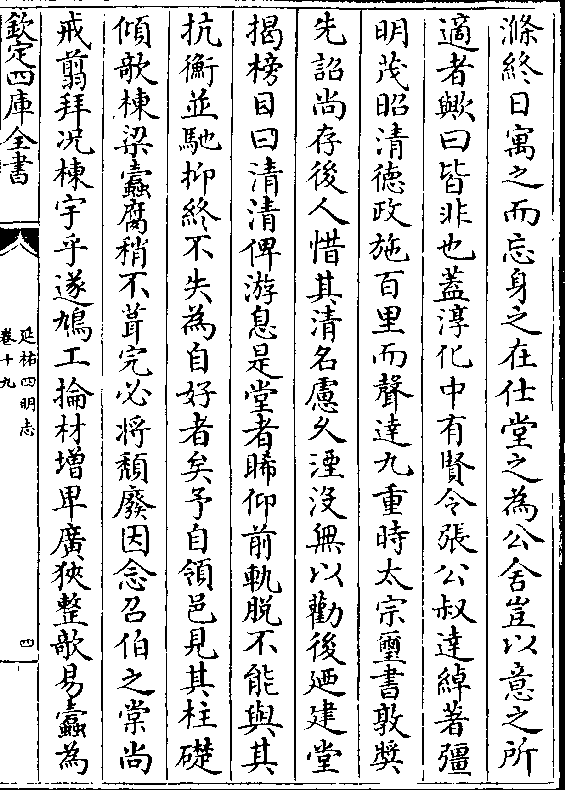 滌終日寓之而忘身之在仕堂之為公舍豈以意之所
適者歟曰皆非也蓋淳化中有賢令張公叔達綽著彊
明茂昭清德政施百里而聲達九重時太宗璽書敦奬
先詔尚存後人惜其清名慮久湮沒無以勸後廼建堂
揭榜目曰清清俾游息是堂者晞仰前軌脱不能與其
抗衡並馳抑終不失為自好者矣予自領邑見其柱礎
傾欹棟梁蠧腐稍不葺完必將頽廢因念召伯之棠尚
戒翦拜况棟宇乎遂鳩工掄材增卑廣狹整欹易蠧為
欽定四庫全書
延祐四明志
卷十九
四